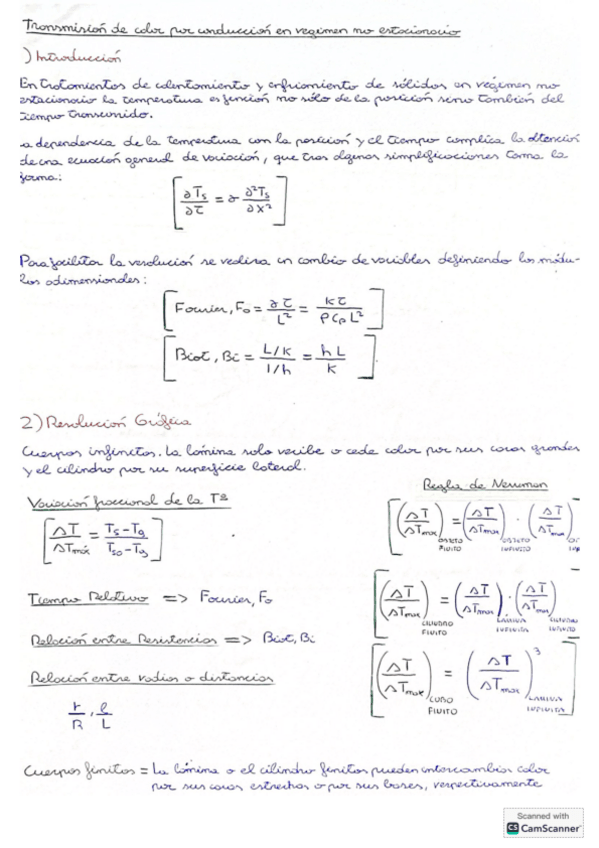 Transmisión de calor por conducción en regimen no estacionario
) Introducción
En tratamientos de calentamiento y enfriamiento de sólidos en régimen no
estacionario la temperatura es función no sólo de la posición sino también del
tiempo transcurrido.
a dependencia de la temperatura con la posición y el tiempo complica la obtención
de una ecuación general de variación, que tras algunas simplificaciones toma la
forma:
[∂Ts/∂τ = α ∂²Ts/∂x²]
Para facilitar la resolución se realiza un cambio de variables definiendo los módu-
los adimensionales:
[Fourier, Fo = ατ/L² = kτ/ρCpL²]
[Biot, Bi = L/k / 1/h = hL/k]
2) Resolución Gráfica
Cuerpos infinitos. La lámina solo recibe o cede calor por sus caras grandes
y el cilindro por su superficie lateral.
Variación fraccional de la Tª
[ΔT/ΔTmáx = Ts-Tg/Tso-Tg]
Tiempo Relativo => Fourier, Fo
Relación entre Resistencias => Biot, Bi
Relación entre radios o distancias
r/R, l/L
Regla de Newman
[(ΔT/ΔTmax) OBJETO FINITO = (ΔT/ΔTmax) OBJETO INFINITO · (ΔT/ΔTmax)
[(ΔT/ΔTmax) CILINDRO FINITO = (ΔT/ΔTmax) LAMINA INFINITA · (ΔT/ΔTmax) CILINDRO INFINITO
[(ΔT/ΔTmax) CUBO FINITO = (ΔT/ΔTmax)³ LAMINA INFINITA]
Cuerpos finitos = La lámina o el cilindro finitos pueden intercambiar calor
por sus caras estrechas o por sus bases, respectivamente
Scanned with
CS CamScanner